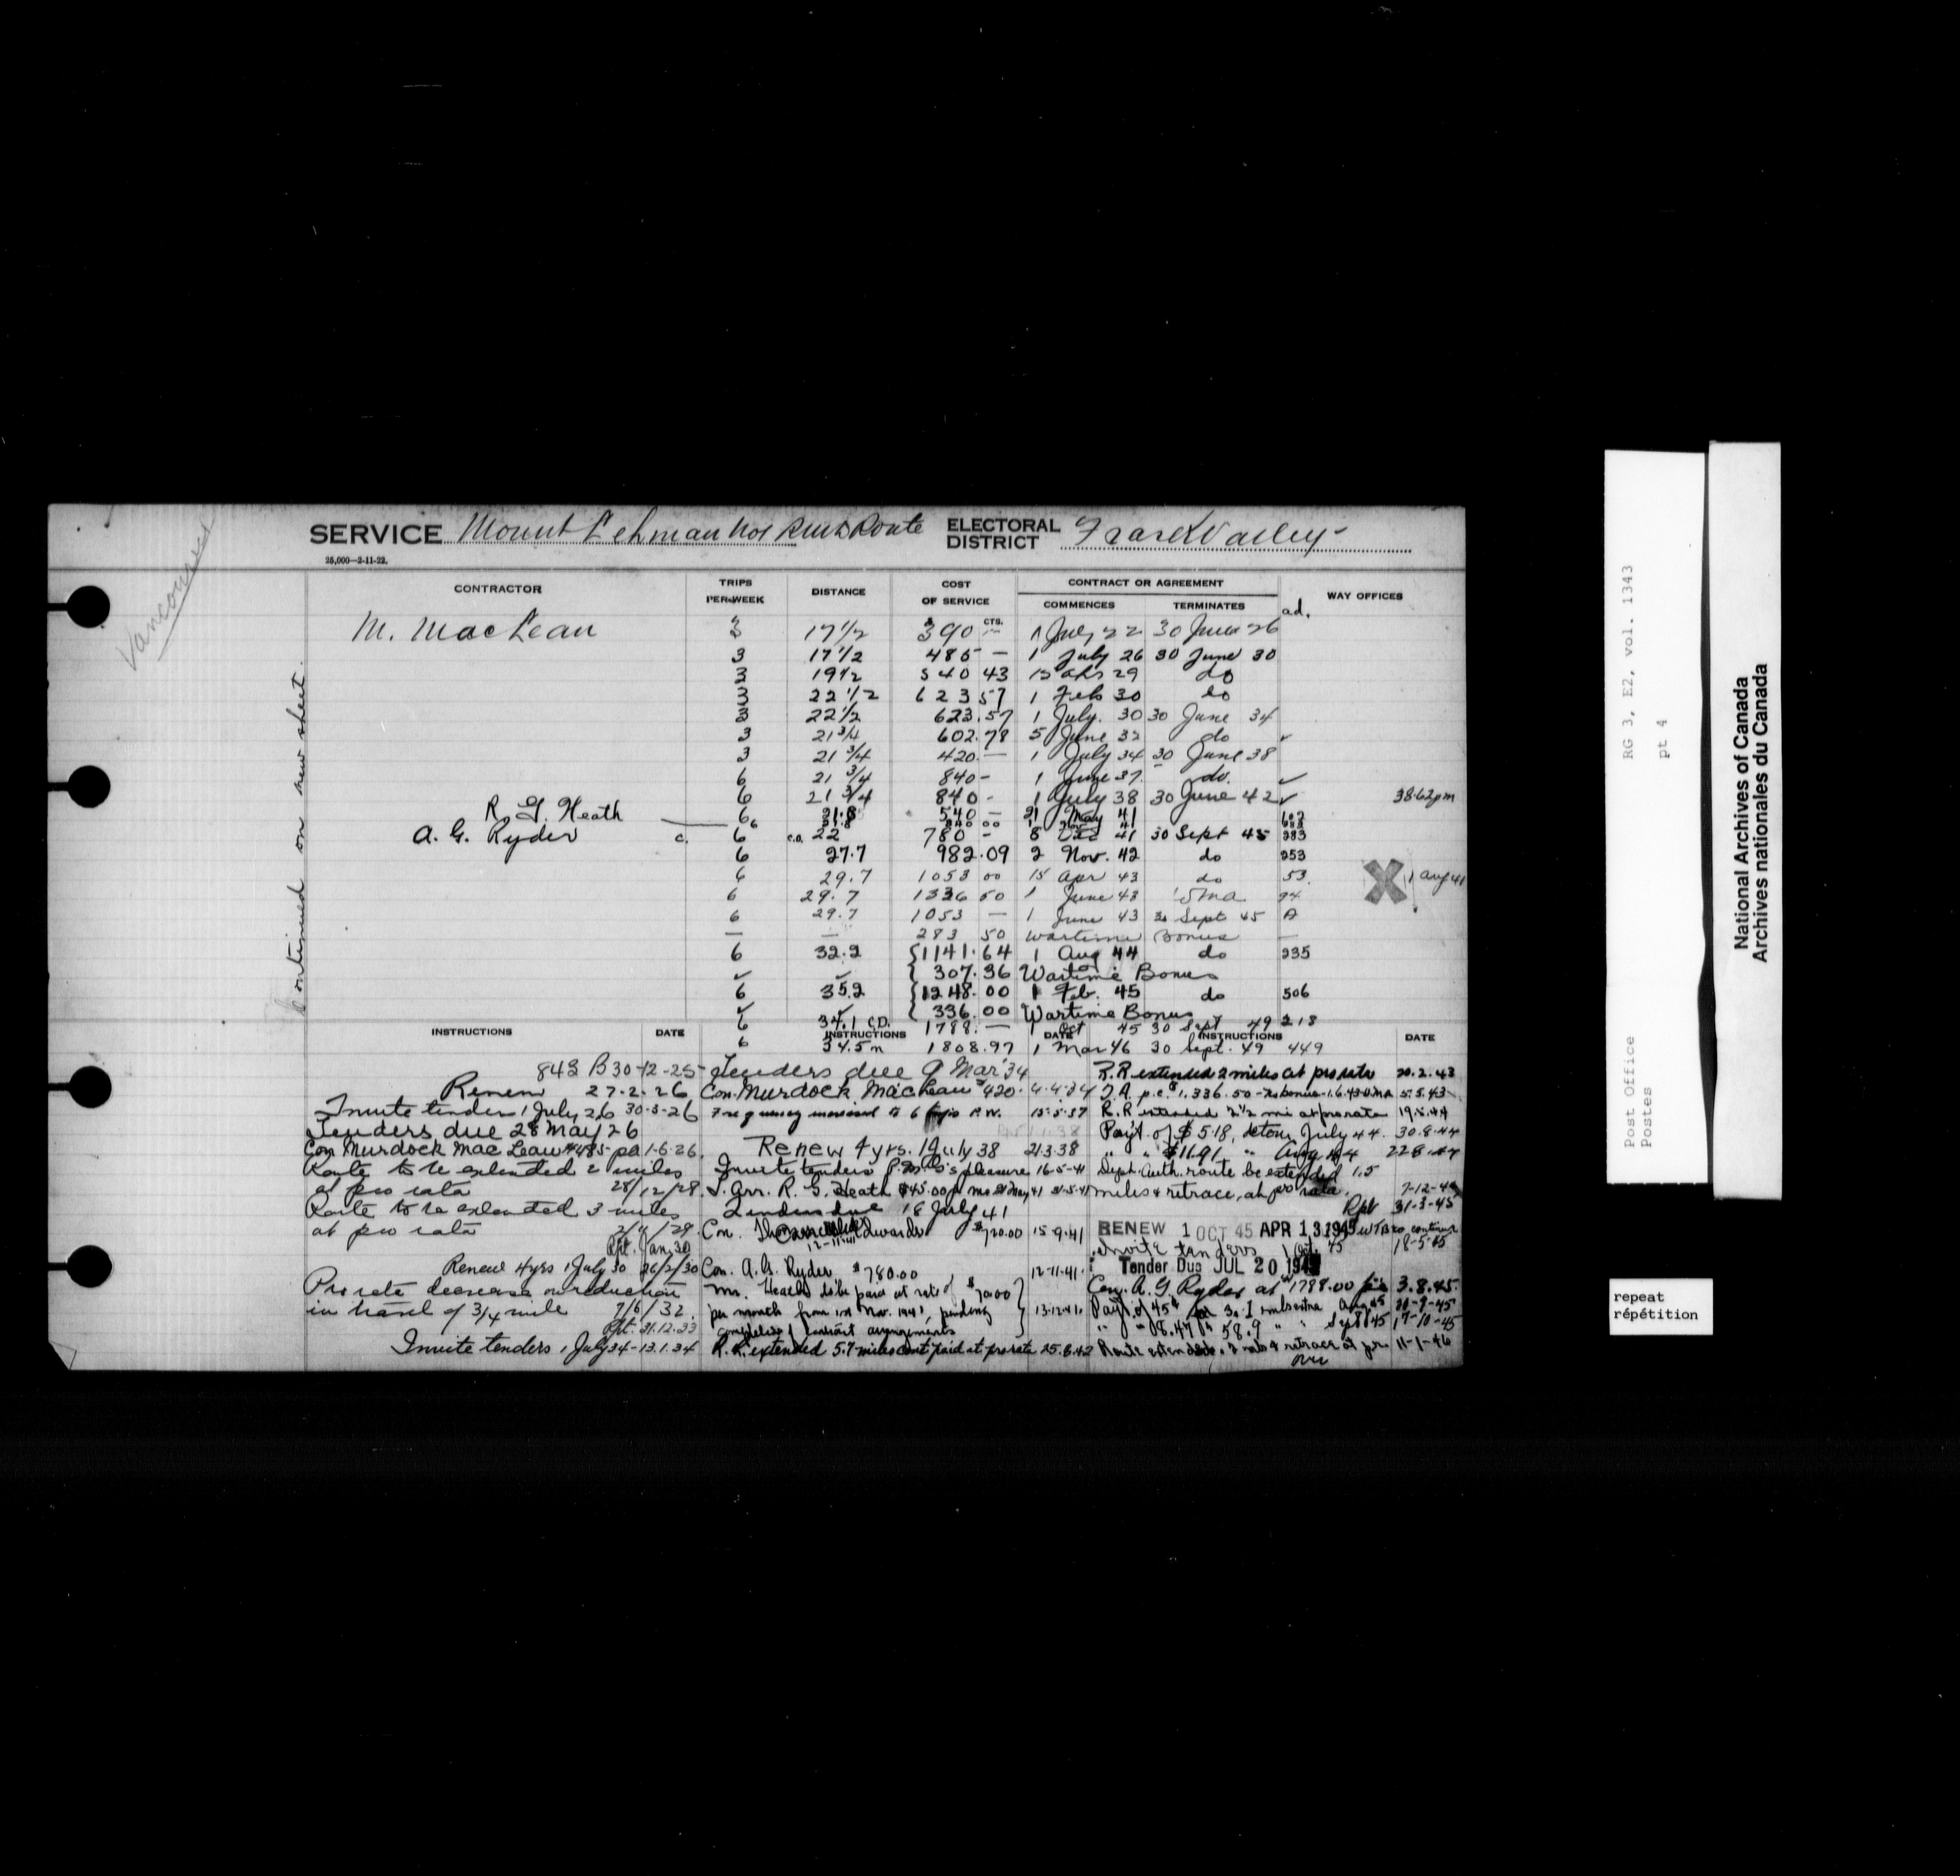 SERVICE Mount Lehman No 1 Rural Route ELECTORAL DISTRICT Fraser Valley
25,000—2-11-22.
Vancouver
Continued on new sheet.
CONTRACTOR TRIPS PER WEEK DISTANCE COST OF SERVICE CONTRACT OR AGREEMENT COMMENCES TERMINATES WAY OFFICES
ad.
M. MacLean 3 17 1/2 $390 CTS. — 1 July 22 30 June 26
3 17 1/2 485 — 1 July 26 30 June 30
3 19 1/2 540 43 15 29 do
3 22 1/2 623 57 1 Feb 30 do
3 22 1/2 623.57 1 July. 30 30 June 34
3 21 3/4 602.78 5 June 32 do ✓
3 21 3/4 420. — 1 July 34 30 June 38
6 21 3/4 840 - 1 June 37. do. ✓
6 21 3/4 840 - 1 July 38 30 June 42 ✓ 38.62 pm
R. G. Heath 6 21.8 540 — 21 May 41
6 21.8 840 00 1 Nov 41
A. G. Ryder c. 6 c.a. 22 780 - 8 Dec 41 30 Sept 45 383
6 27.7 982.09 2 Nov. 42 do 253
6 29.7 1053 00 15 Apr 43 do 53. X 1 Aug 41
6 29.7 1336 50 1 June 43 94
6 29.7 1053 — 1 June 43 30 Sept 45 A
— — 283 50 Wartime Bonus —
6 32.2 {1141.64 1 Aug 44 do 235
✓ ✓ { 307.36 Wartime Bonus
6 35.2 {1248.00 1 Feb. 45 do 506
✓ ✓ { 336.00 Wartime Bonus
6 34.1 C.D. 1788. — 1 Oct 45 30 Sept 49 218
6 34.5 m 1808.97 1 Mar 46 30 Sept. 49 449
INSTRUCTIONS DATE
843 B 30-12-25
Renew 27-2-26
Invite tenders 1 July 26 30-3-26
Tenders due 28 May 26
Con Murdock MacLean $485- pa 1-6-26.
Route to be extended 2 miles
at pro rata 28/12/28.
Route to be extended 3 miles
at pro rata 2/11/29.
Rpt. Jan. 30
Renew 4 yrs 1 July 30 26/2/30
Pro rata decrease on reduction
in travel of 3/4 mile 7/6/32.
Rpt. 31.12.33
Invite tenders 1 July 34 - 13.1.34
INSTRUCTIONS DATE
Tenders due 9 Mar '34
Con. Murdock MacLean $420. 4-4-34
Frequency increased to 6 trips P.W. 15-5-37
Renew 4 yrs. 1 July 38 21-3-38
Invite tenders P.M.G's pleasure 16-5-41
T. Arr. R. G. Heath $45.00 p mo 21 May 41 21-5-41
Tenders due 18 July 41
Con. Edwards $720.00 15-9-41
12-11-41
Con. A. G. Ryder $780.00 12-11-41.
Mr. Heath to be paid at rate of $70.00
per month from 1st Nov. 1941, pending 13-12-41.
completion of contract arrangements
R.R. extended 5.7 miles cont paid at pro rata 25.8.42
INSTRUCTIONS DATE
R.R extended 2 miles at pro rata 20.2.43
T.A. p.c. $1,336.50 - no bonus - 1.6.43 5.5.43
R.R extended 2 1/2 mi at pro rata 19.5.44
Pay't of $5.18, detour July 44. 30.8.44
" " $11.91 " Aug 44
Dept. Auth. route be extended 1.5
miles & retrace, at pro rata. 7-12-44
Rpt 31-3-45
RENEW 1 OCT 45 APR 13 1945 WTB to continue
Invite tenders 1 Oct. 45 18-5-45
Tender Due JUL 20 1945
Con. A. G. Ryder at $1788.00 3.8.45.
Pay't of 45¢ for 3.1 mls extra Aug 45
" " 58.9 " " Sept 45 17-10-45
Route extended & retrace at 11-1-46
over
RG 3, E2, vol. 1343
pt 4
Post Office
Postes
National Archives of Canada
Archives nationales du Canada
repeat
répétition